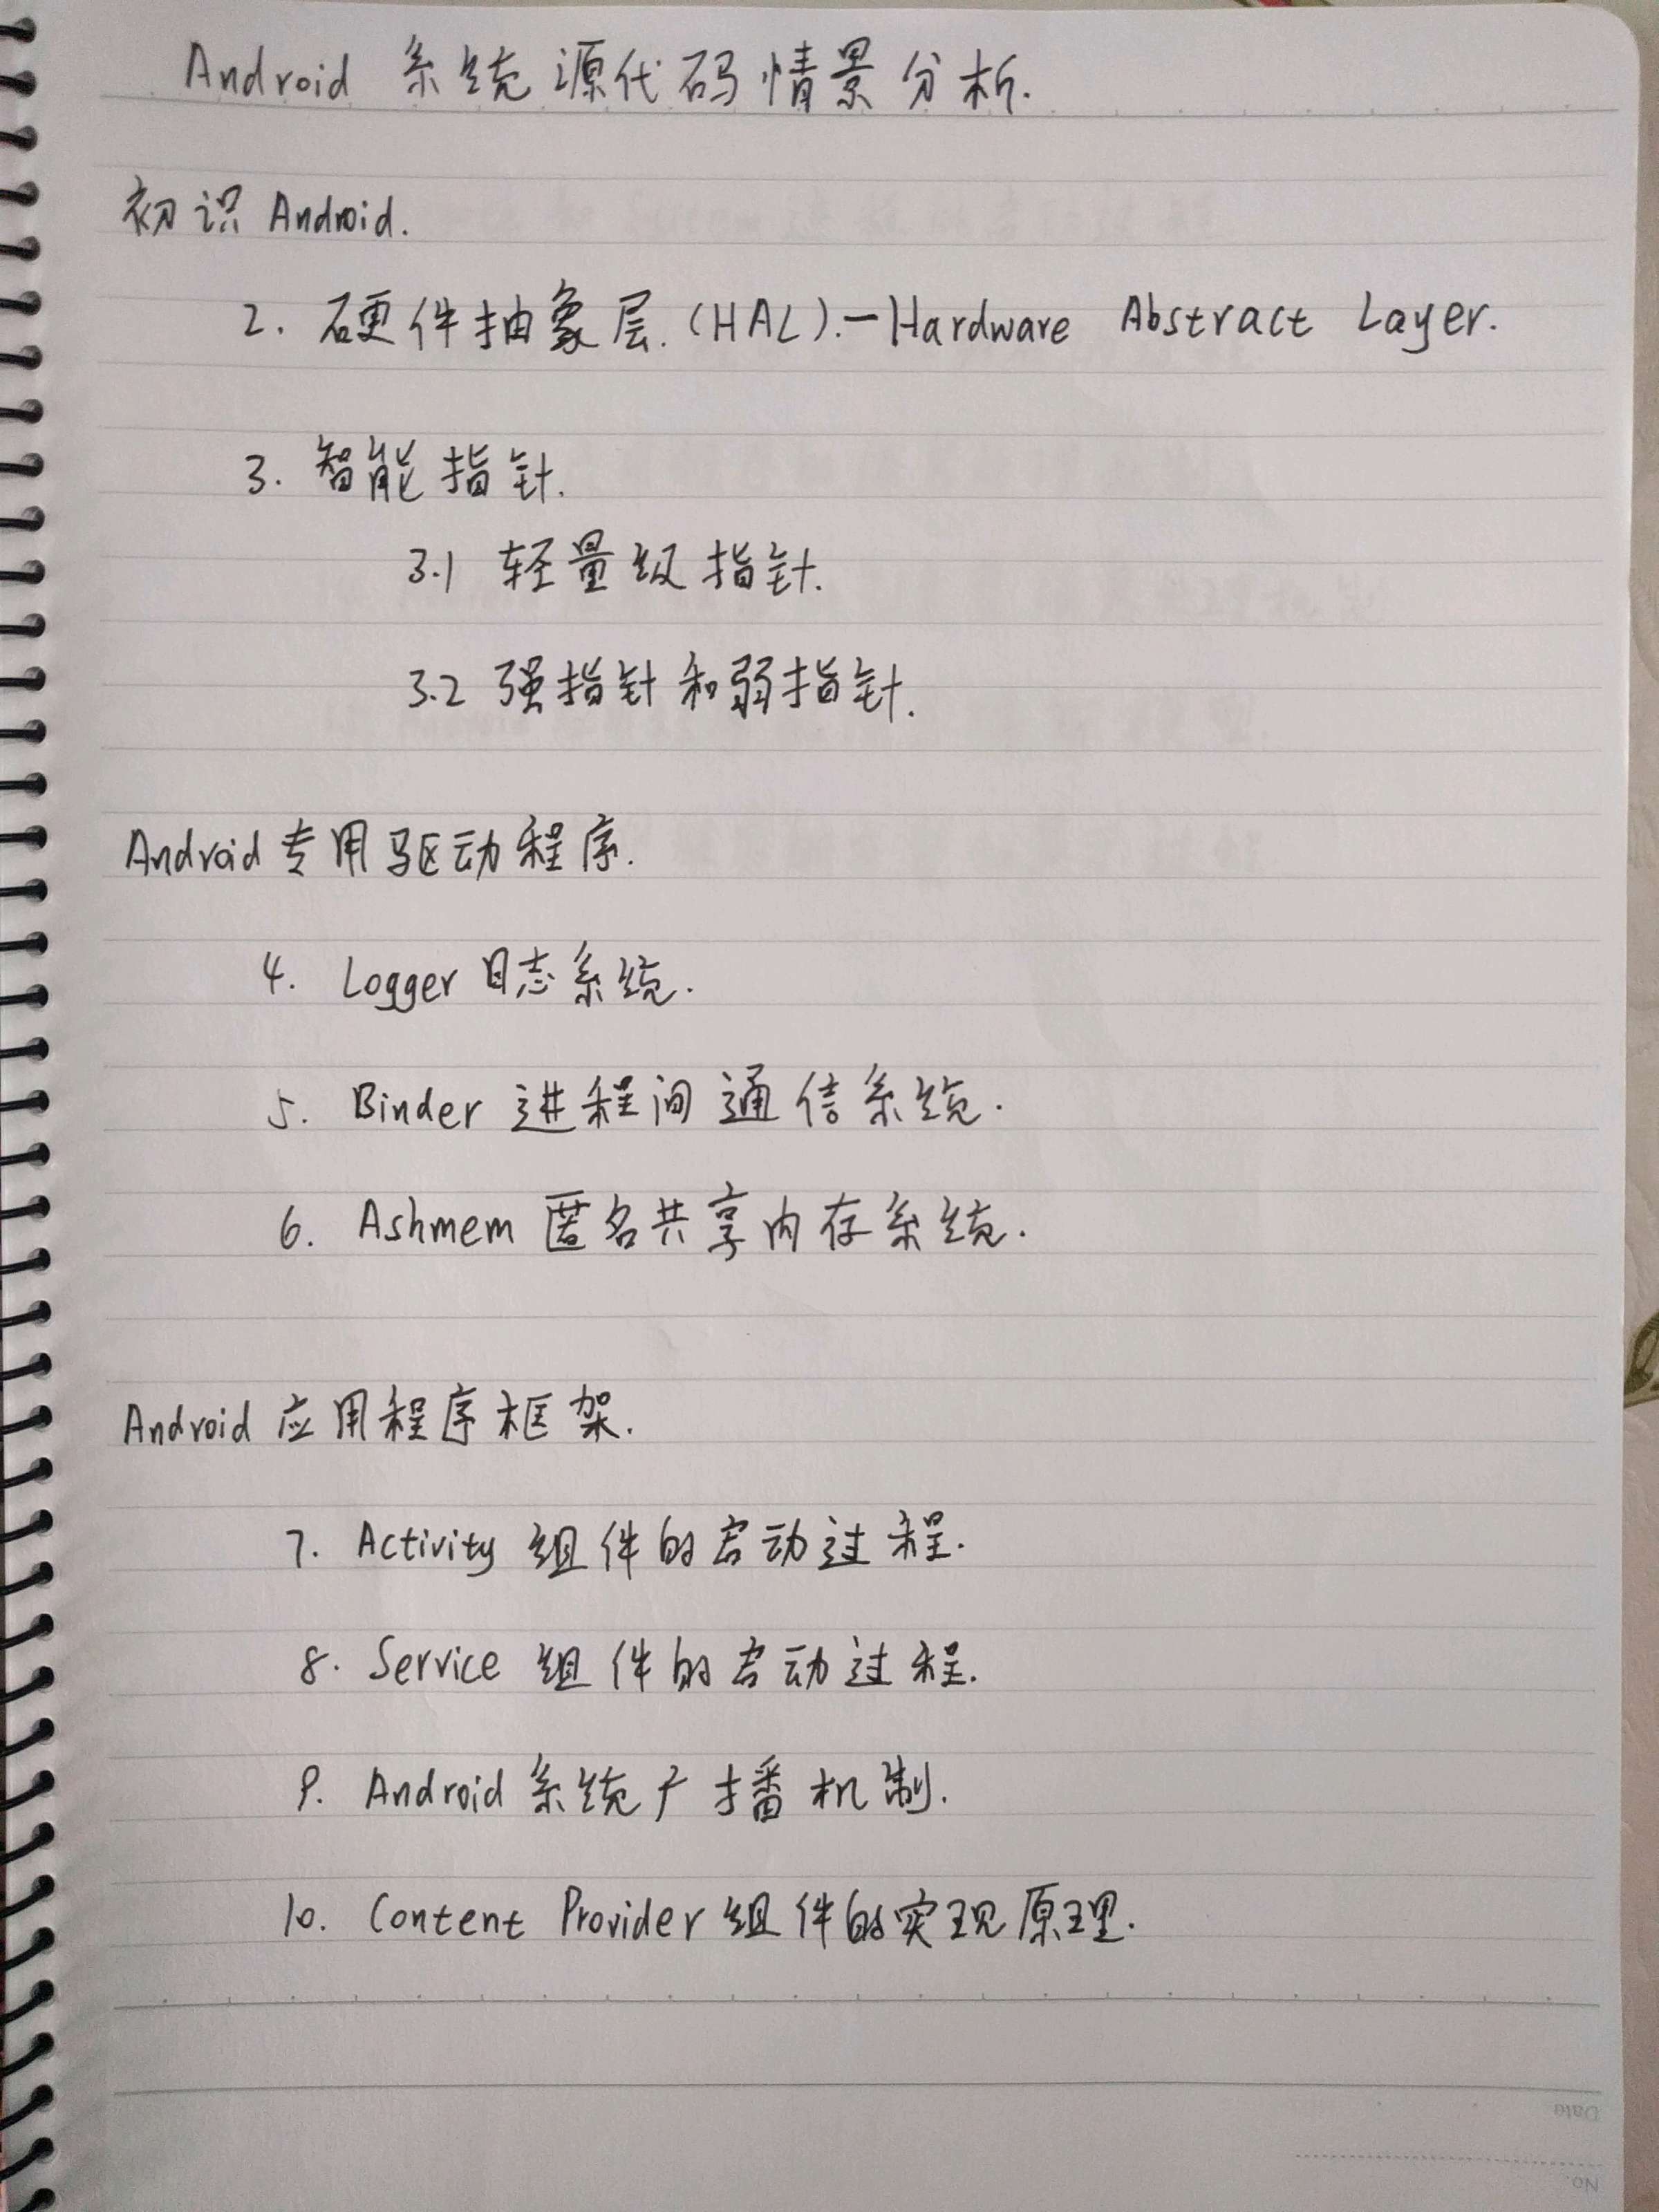 Android 系统源代码情景分析.
初识 Android.
2. 硬件抽象层.(HAL).—Hardware Abstract Layer.
3. 智能指针.
3.1 轻量级指针.
3.2 强指针和弱指针.
Android 专用驱动程序.
4. Logger 日志系统.
5. Binder 进程间通信系统.
6. Ashmem 匿名共享内存系统.
Android 应用程序框架.
7. Activity 组件的启动过程.
8. Service 组件的启动过程.
9. Android 系统广播机制.
10. Content Provider 组件的实现原理.
Date
No.